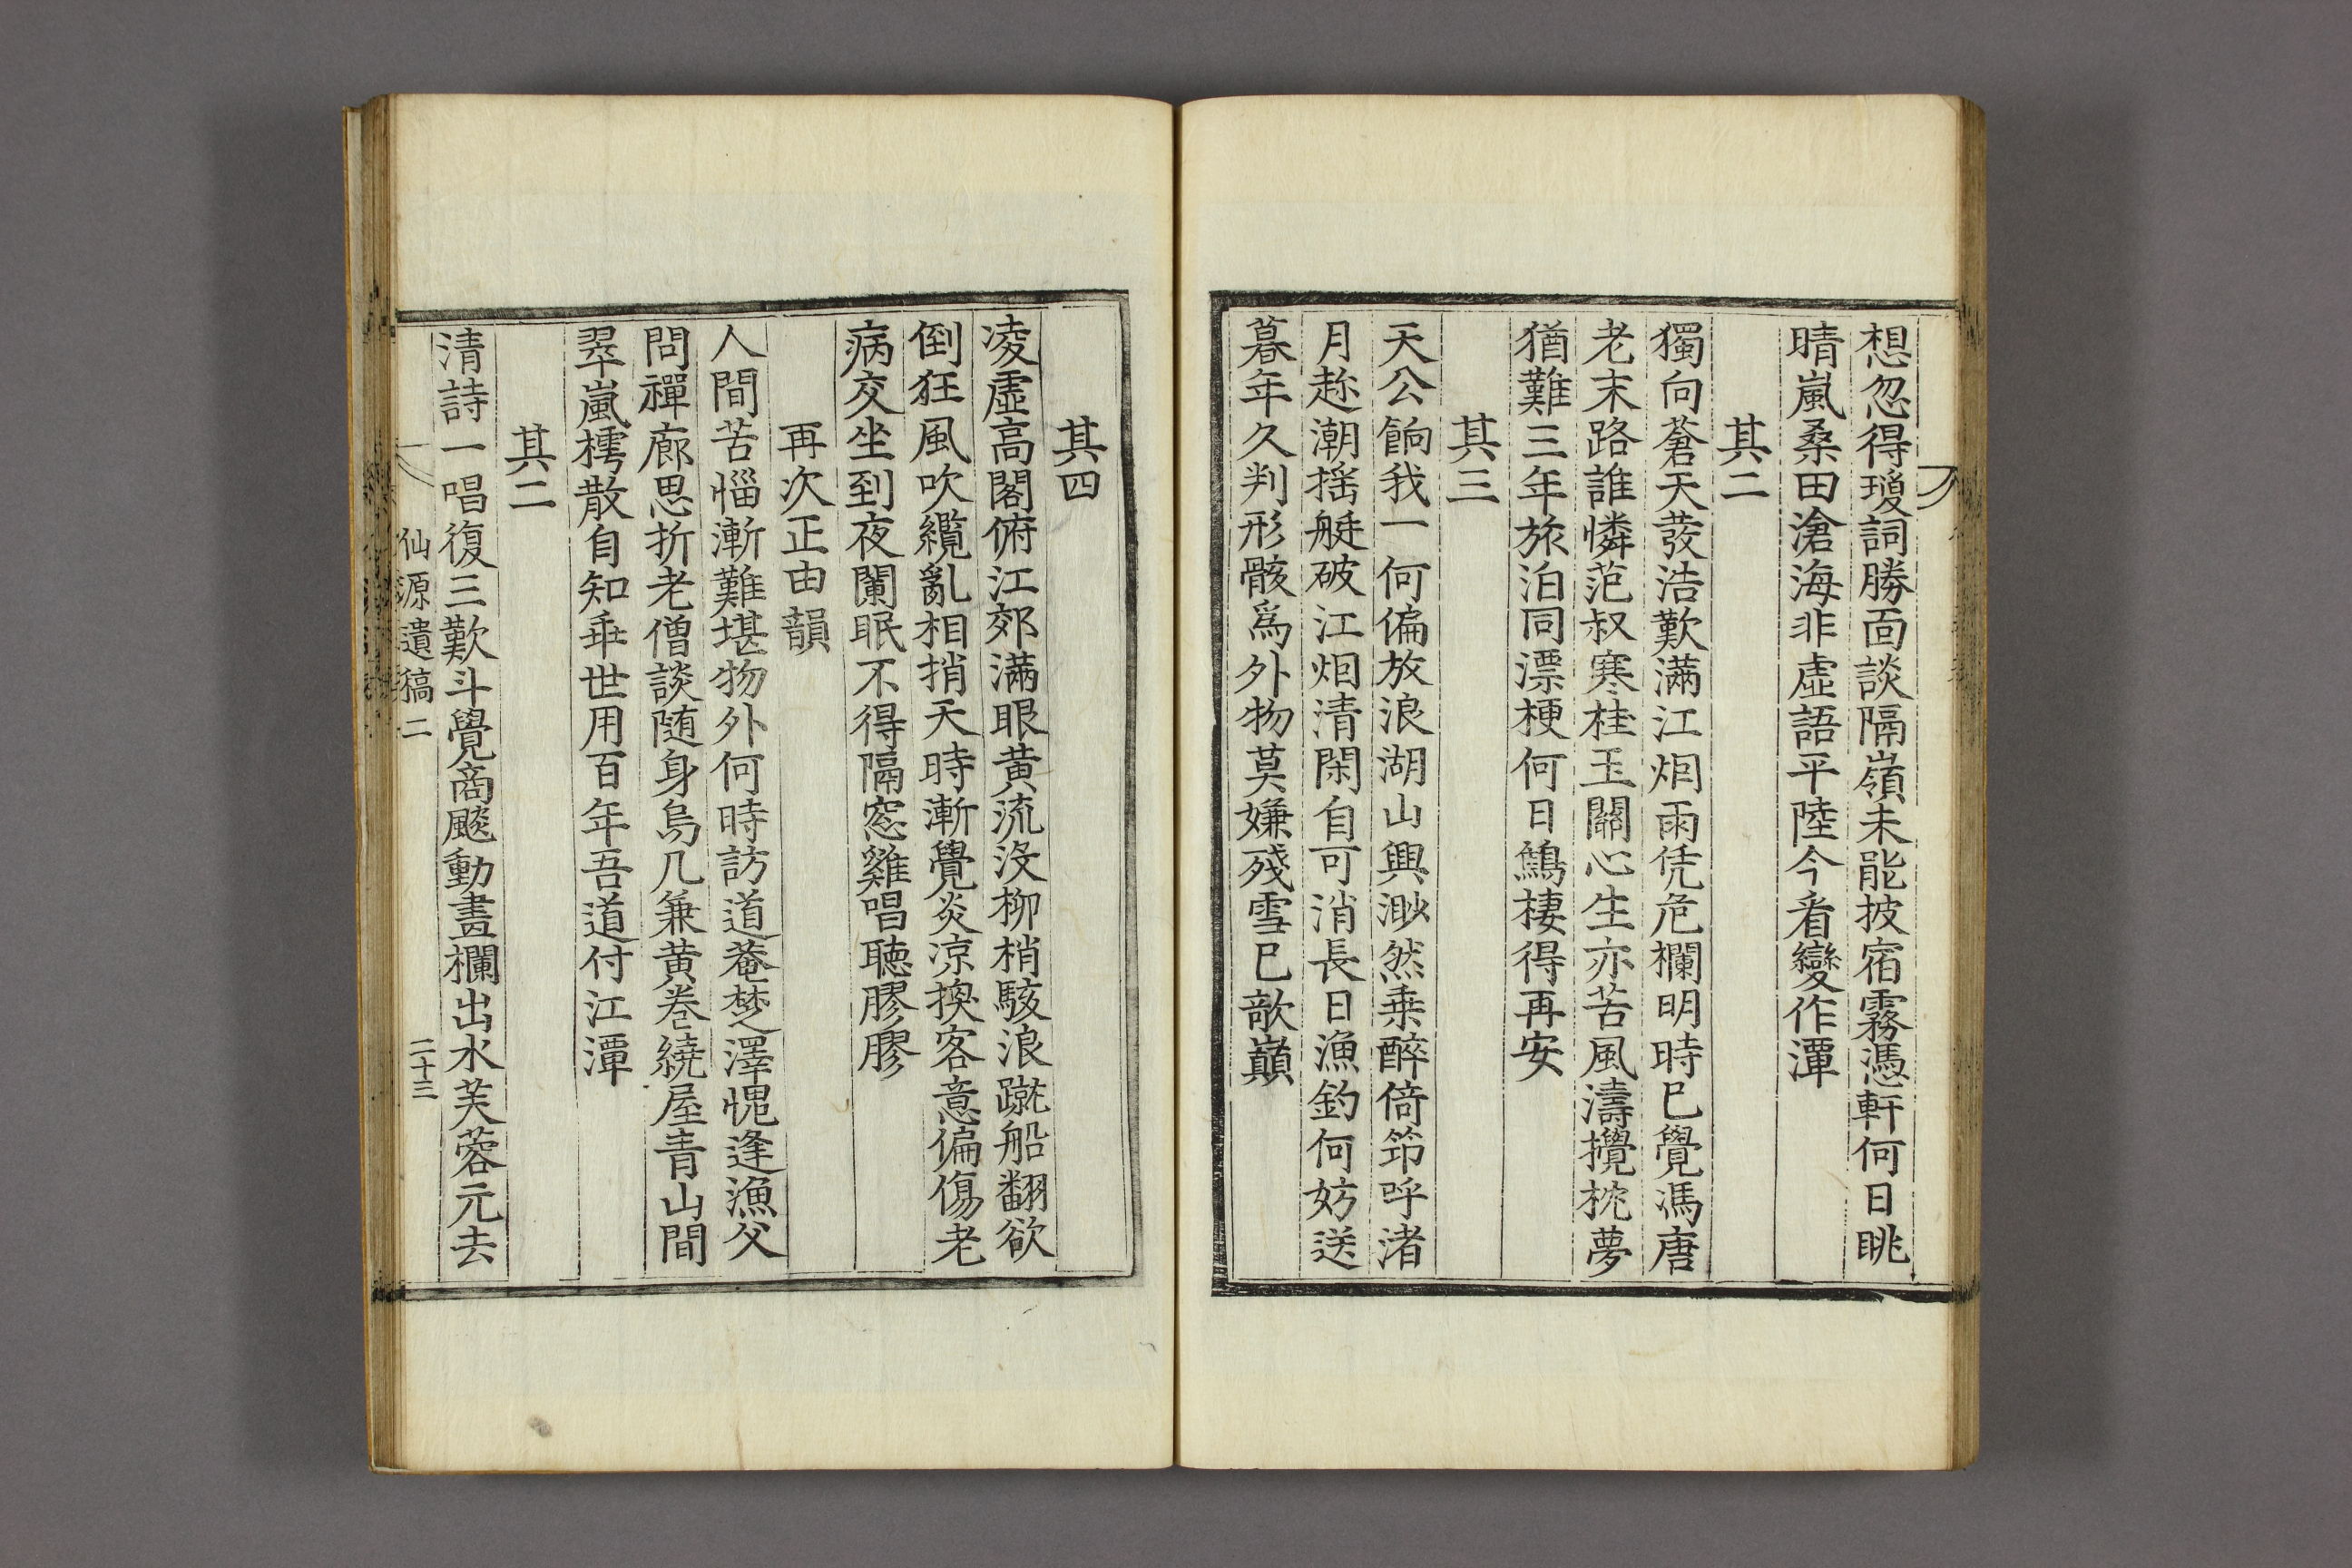 想忽得瓊詞勝面談隔嶺未能披宿霧憑軒何日眺
晴嵐桑田滄海非虛語平陸今看變作潭
其二
獨向蒼天發浩歎滿江烟雨凭危欄明時已覺馮唐
老末路誰憐范叔寒桂玉關心生亦苦風濤攪枕夢
猶難三年旅泊同漂梗何日鷦棲得再安
其三
天公餉我一何偏放浪湖山興渺然乗醉倚笻呼渚
月趂潮揺艇破江烟清閑自可消長日漁釣何妨送
暮年久判形骸爲外物莫嫌殘雪已欹巔
其四
凌虛高閣俯江郊滿眼黃流沒柳梢駭浪蹴船翻欲
倒狂風吹纜亂相捎天時漸覺炎凉換客意偏傷老
病交坐到夜闌眠不得隔窓雞唱聴膠膠
再次正由韻
人間苦惱漸難堪物外何時訪道菴楚澤愧逢漁父
問禪廊思折老僧談随身烏几兼黃卷繞屋靑山間
翠嵐樗散自知乖世用百年吾道付江潭
其二
清詩一唱復三歎斗覺商飈動畫欄出水芙蓉元去
仙源遺稿二
二十三